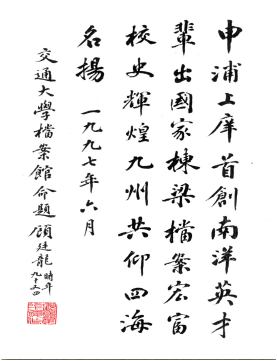 申浦上庠首創南洋英才
輩出國家棟梁檔案宏富
校史輝煌九州共仰四海
名揚 一九九七年六月
交通大學檔案館命題 顧廷龍 時年
九十四